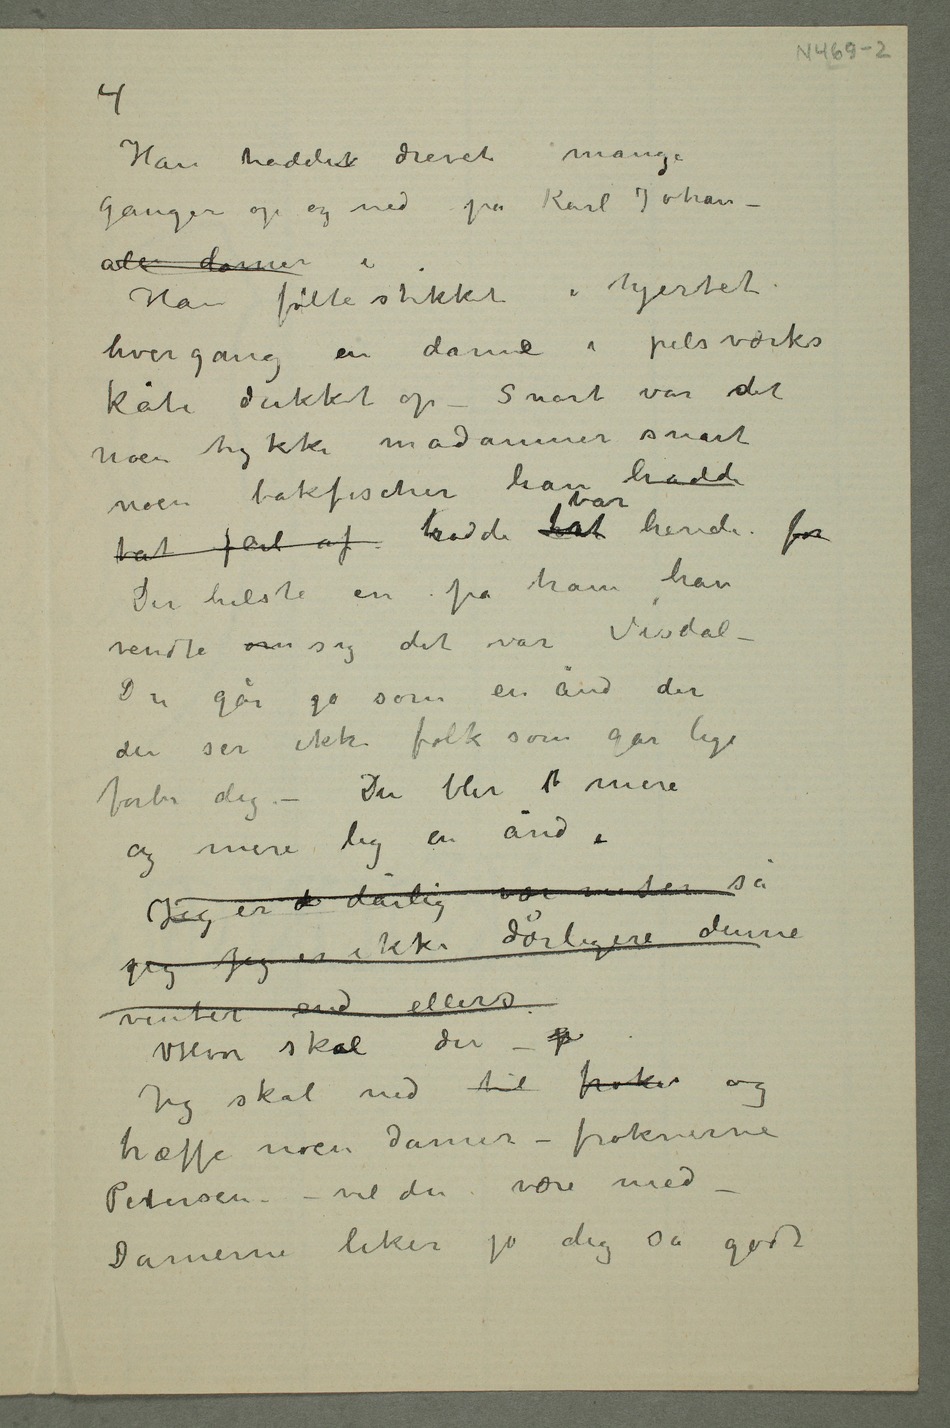 N469-2
4
Han hadde drevet mange
ganger op og ned på Karl Johan –
alle damer i
Han følte stikket i hjertet
hvergang en dame i pelsværks
kåbe dukket op – Snart var det
noen tykke madammer snart
noen bakfischer han hadde
tat feil af. trodde var hende. for
Der hilste en på ham han
vendte om sig det var Visdal –
Du går jo som en ånd der
du ser ikke folk som går lige
forbi dig. – Du blir mere
og mere lig en ånd.
Jeg er dårlig vær vinter så
jeg jeg er ikke dårligere denne
vinter end ellers.
Hvor skal du –
Jeg skal ned til frøken og
træffe noen damer – frøknerne
Petersen – vil du være med –
Damerne liker jo dig så godt